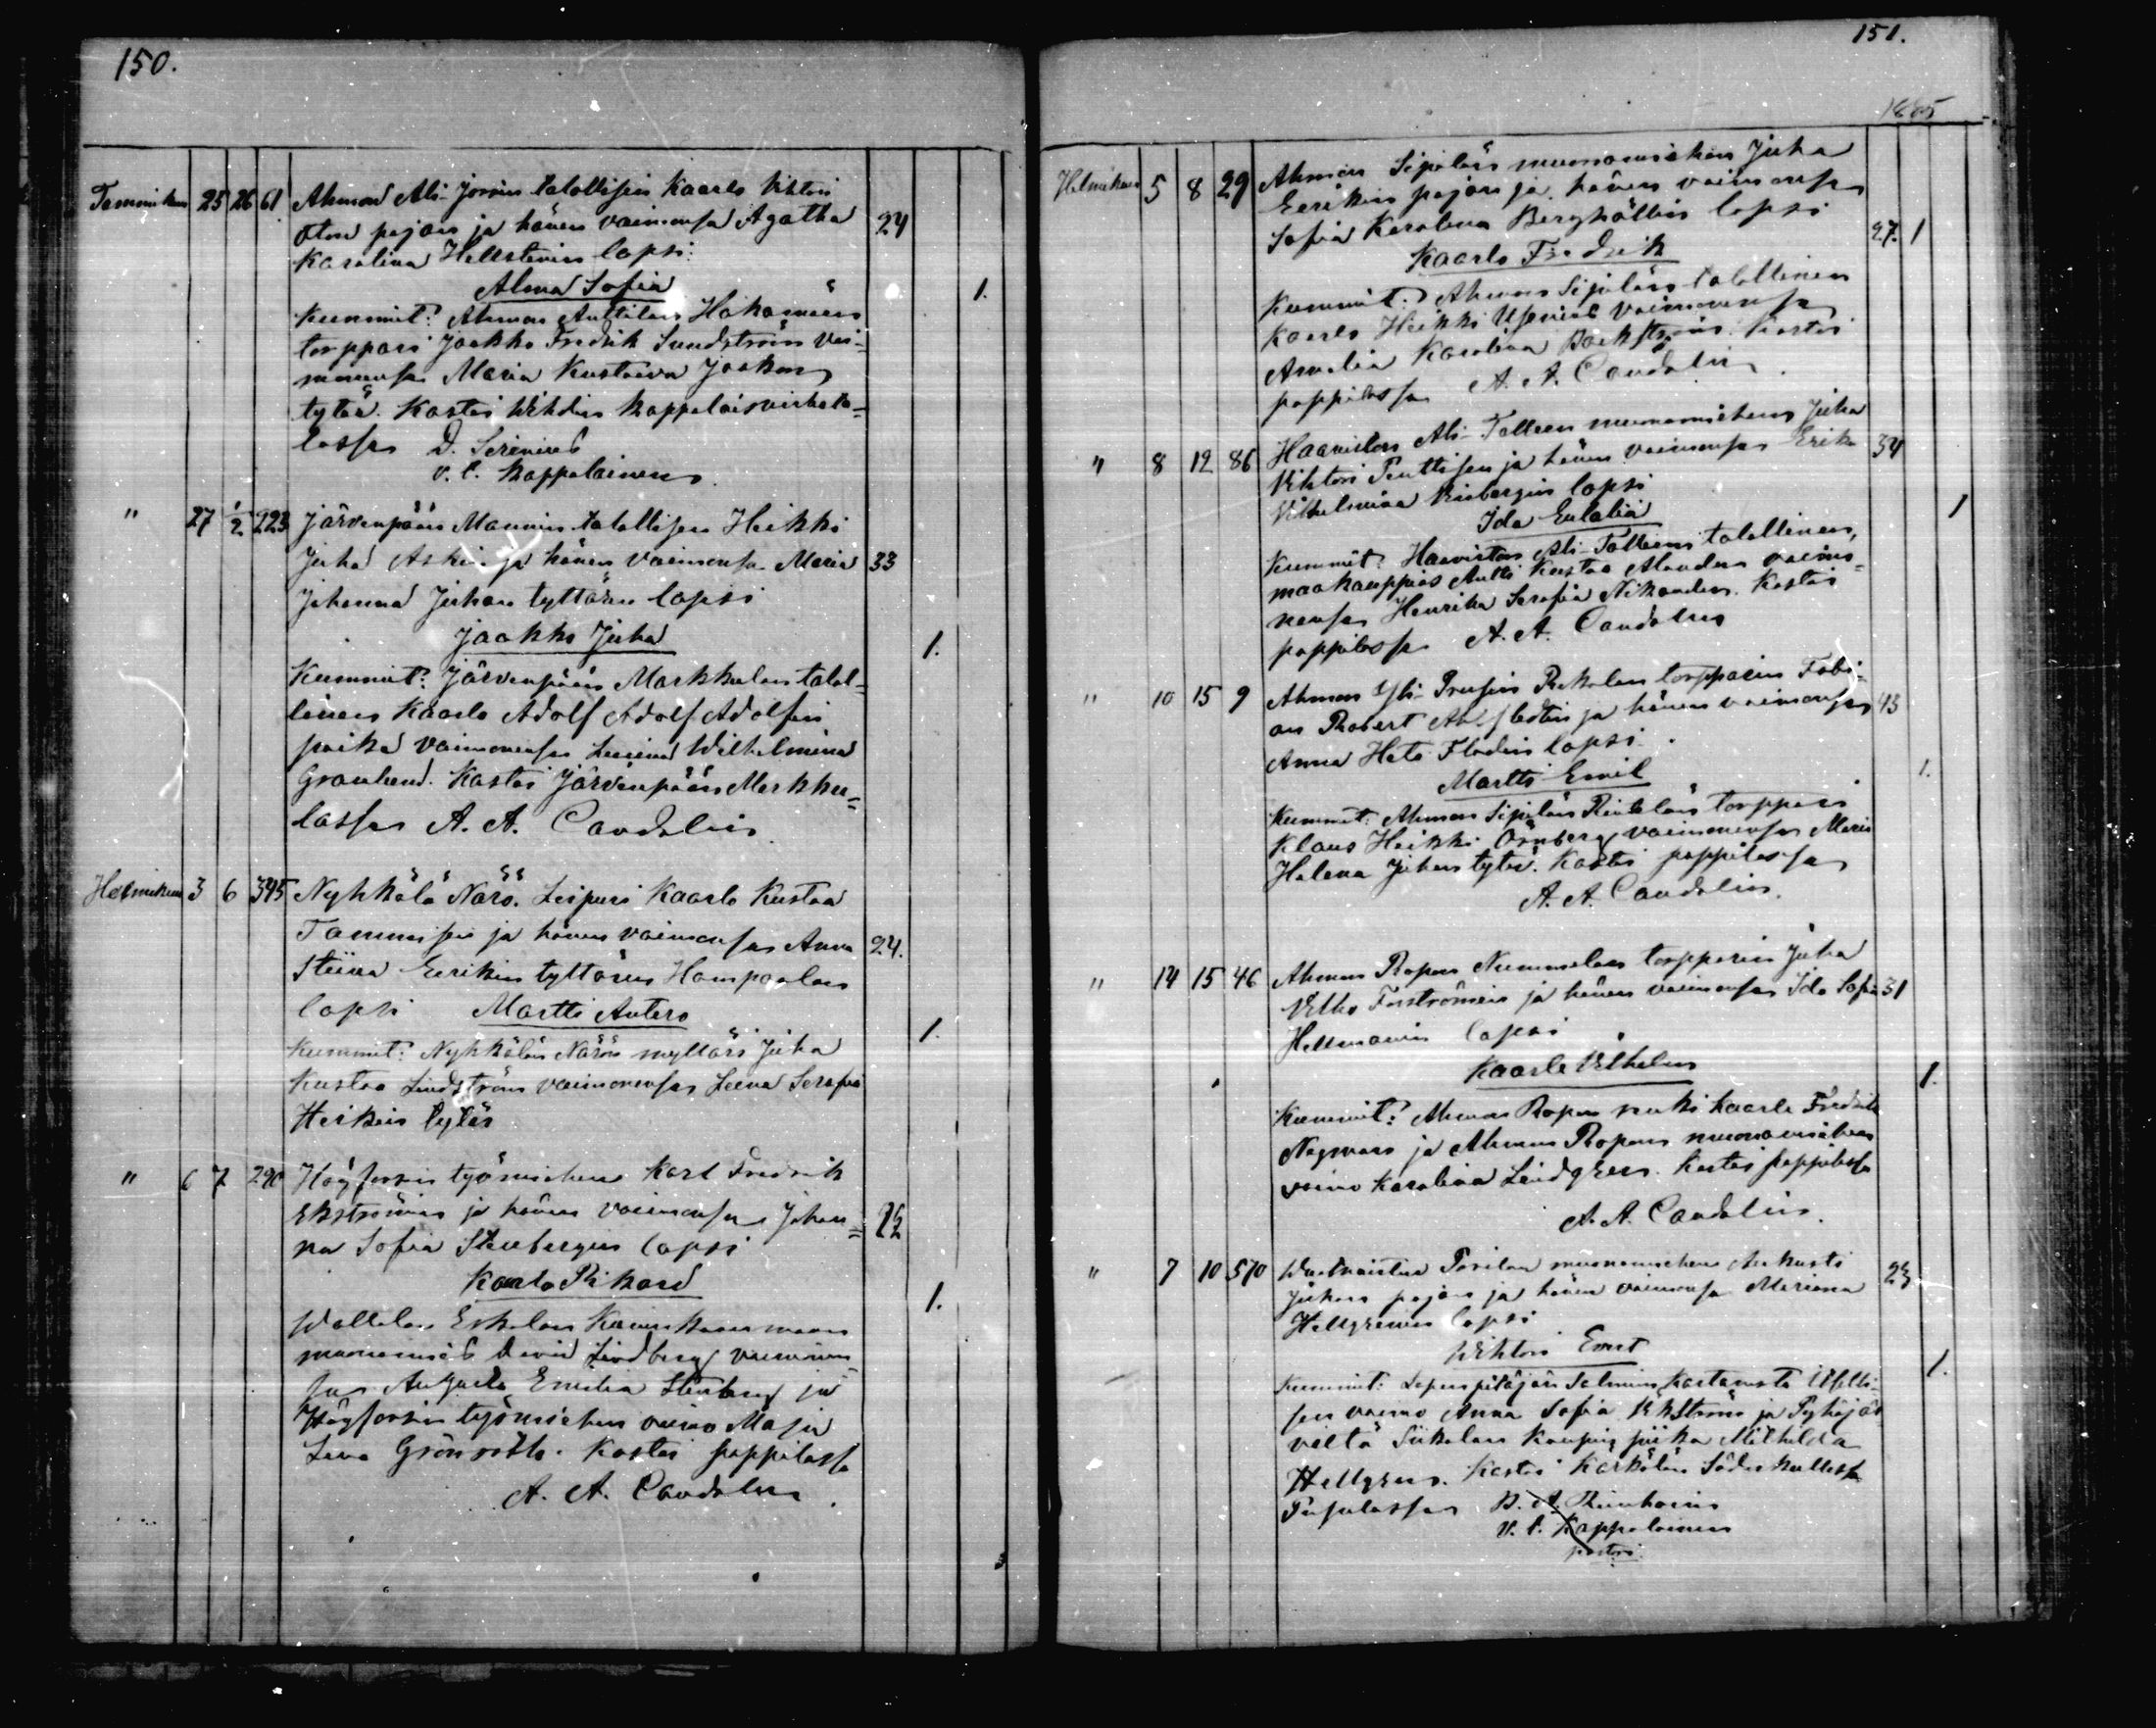 150.
Tammikuu 25 26 61 Ahmon Ali-Jorvin talollisen Kaarlo Viktori
Oton pojan ja hänen vaimonsa Agatha 24
Karolina Hellstenin lapsi:
Alma Sofia 1.
Kummit: Ahmon Anttilan Hakamäen
torppari Jaakko Fredrik Sundström vai-
monensa Maria Kustaava Jaakon
tytär. Kastoi Wihdin kappalaisvirkata-
lossa D. Serenius
v. t. kappalainen.
" 27 1/2 223 Järvenpään Mannin talollisen Heikki
Juha Askin ja hänen vaimonsa Maria 33
Johanna Juhan tyttären lapsi
Jaakko Juha 1.
Kummit: Järvenpään Markkulan talol-
linen Kaarlo Adolf Adolf Adolfin
poika vaimonensa Wilhelmina
Granlund. Kastoi Järvenpään Markku-
lassa A. A. Candolin
Helmikuu 3 6 345 Nyhkälä Närö. Leipuri Kaarlo Kustaa
Tammisen ja hänen vaimonsa Anna 24.
Stiina Eerikin tyttären Hampaalan
lapsi Martti Antero 1.
Kummit: Nyhkälän Närön mylläri Juha
Kustaa Lindström vaimonensa Leena Serafia
Heikin tytär
" 6 7 290 Högforsin työmiehen Karl Fredrik
Ekströmin ja hänen vaimonsa Johan-
na Sofia Stenbergin lapsi
Kaarlo Rikard 1.
muonamies David Lindberg vaimonen-
sa Augusta Emilia Stenberg ja
Högforsin työmiehen vaimo Maja
Lena Grönroth. Kastoi pappilassa
A. A. Candolin.
151.
1885
Helmikuu 5 8 29 Ahmon Sipilän muonamiehen Juha
Eerikin pojan ja hänen vaimonsa
Sofia Karolina Berghällin lapsi 27. 1
Kaarlo Fredrik
Kummit: Ahmon Sipilän talollinen
Kaarlo Heikki Usenius vaimonensa
Amalia Karolina Backström. Kastoi
pappilassa A. A. Candolin.
" 8 12 86 Haaviston Ali-Talleen muonamiehen Juha
Vihtori Penttisen ja hänen vaimonsa Erika 34
Vilhelmiina lapsi
Ida Eulalia 1
Kummit: Haaviston Ali-Talleen talollinen,
maakauppias Antti Kustaa Alander vaimo-
nensa Henrika Serafia Nikander. Kastoi
pappilassa A. A. Candolin
" 10 15 9 Ahmon Yli-Prusin Rekolan torpparin Fabi-
an Robert Ahlstedtin ja hänen vaimonsa 43
Anna Heta Flodin lapsi.
Martti Emil 1.
Kummit: Ahmon Sipilän Rintelän torppari
Klaus Heikki Örnberg vaimonensa Maria
Helena Juhan tytär. Kastoi pappilassa
A. A. Candolin.
" 14 15 46 Ahmon Ropon Nummelan torpparin Juha
Vilho Forströmin ja hänen vaimonsa Ida Sofia 31
Hellmanin lapsi
Kaarle Vilhelm 1.
Kummit: Ahmon Ropon renki Kaarle Fredrik
Nagman ja Ahmon Ropon muonamiehen
vaimo Karolina Lindgren. Kastoi pappilassa
A. A. Candolin.
" 7 10 570 Torilan muonamiehen Aukusti
Juhan pojan ja hänen vaimonsa Mariana
Hellgrenin lapsi
Wiktor Ernst 1.
Kummit:
sen vaimo Anna Sofia Ekström ja Pyhäjär-
veltä Siikalan piika Mathilda
Hellgren. Kastoi Kärkölän Söderkullassa
v. t. Kappalainen
pastori.